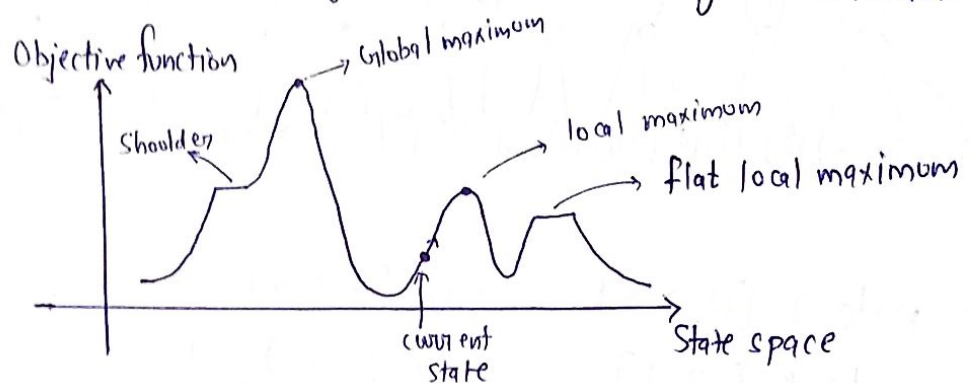 Objective function
Global maximum
Shoulder
local maximum
flat local maximum
current
state
State space